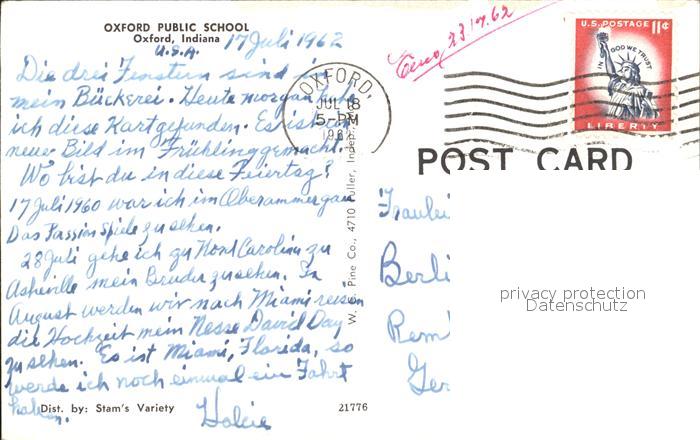 OXFORD PUBLIC SCHOOL
Oxford, Indiana
U.S.A. 17 Juli 1962
Die drei Fenstern sind in
mein Bückerei. Heute morgen habe
ich diese Kart gefunden. Es ist ein
neue Bild im Frühling gemacht.
Wo bist du in diese Feiertag?
17 Juli 1960 war ich im Oberammergau
Das Passion Spiele zu sehen.
28 Juli gehe ich zu Nord Carolina zu
Asheville mein Bruder zu sehen. In
August werden wir nach Miami reisen
die Hochzeit mein Nesse David Day
zu sehen. Es ist Miami, Florida, so
werde ich noch einmal ein Fahrt
haben.
Dist. by: Stam's Variety
21776
W. Pine Co., 4710 Fuller, Indep.
23 17.62
OXFORD,
JUL 18
5-PM
196
U.S. POSTAGE 11¢
IN GOD WE TRUST
LIBERTY
POST CARD
Fraulei
Berli
Rem
Ger
privacy protection
Datenschutz